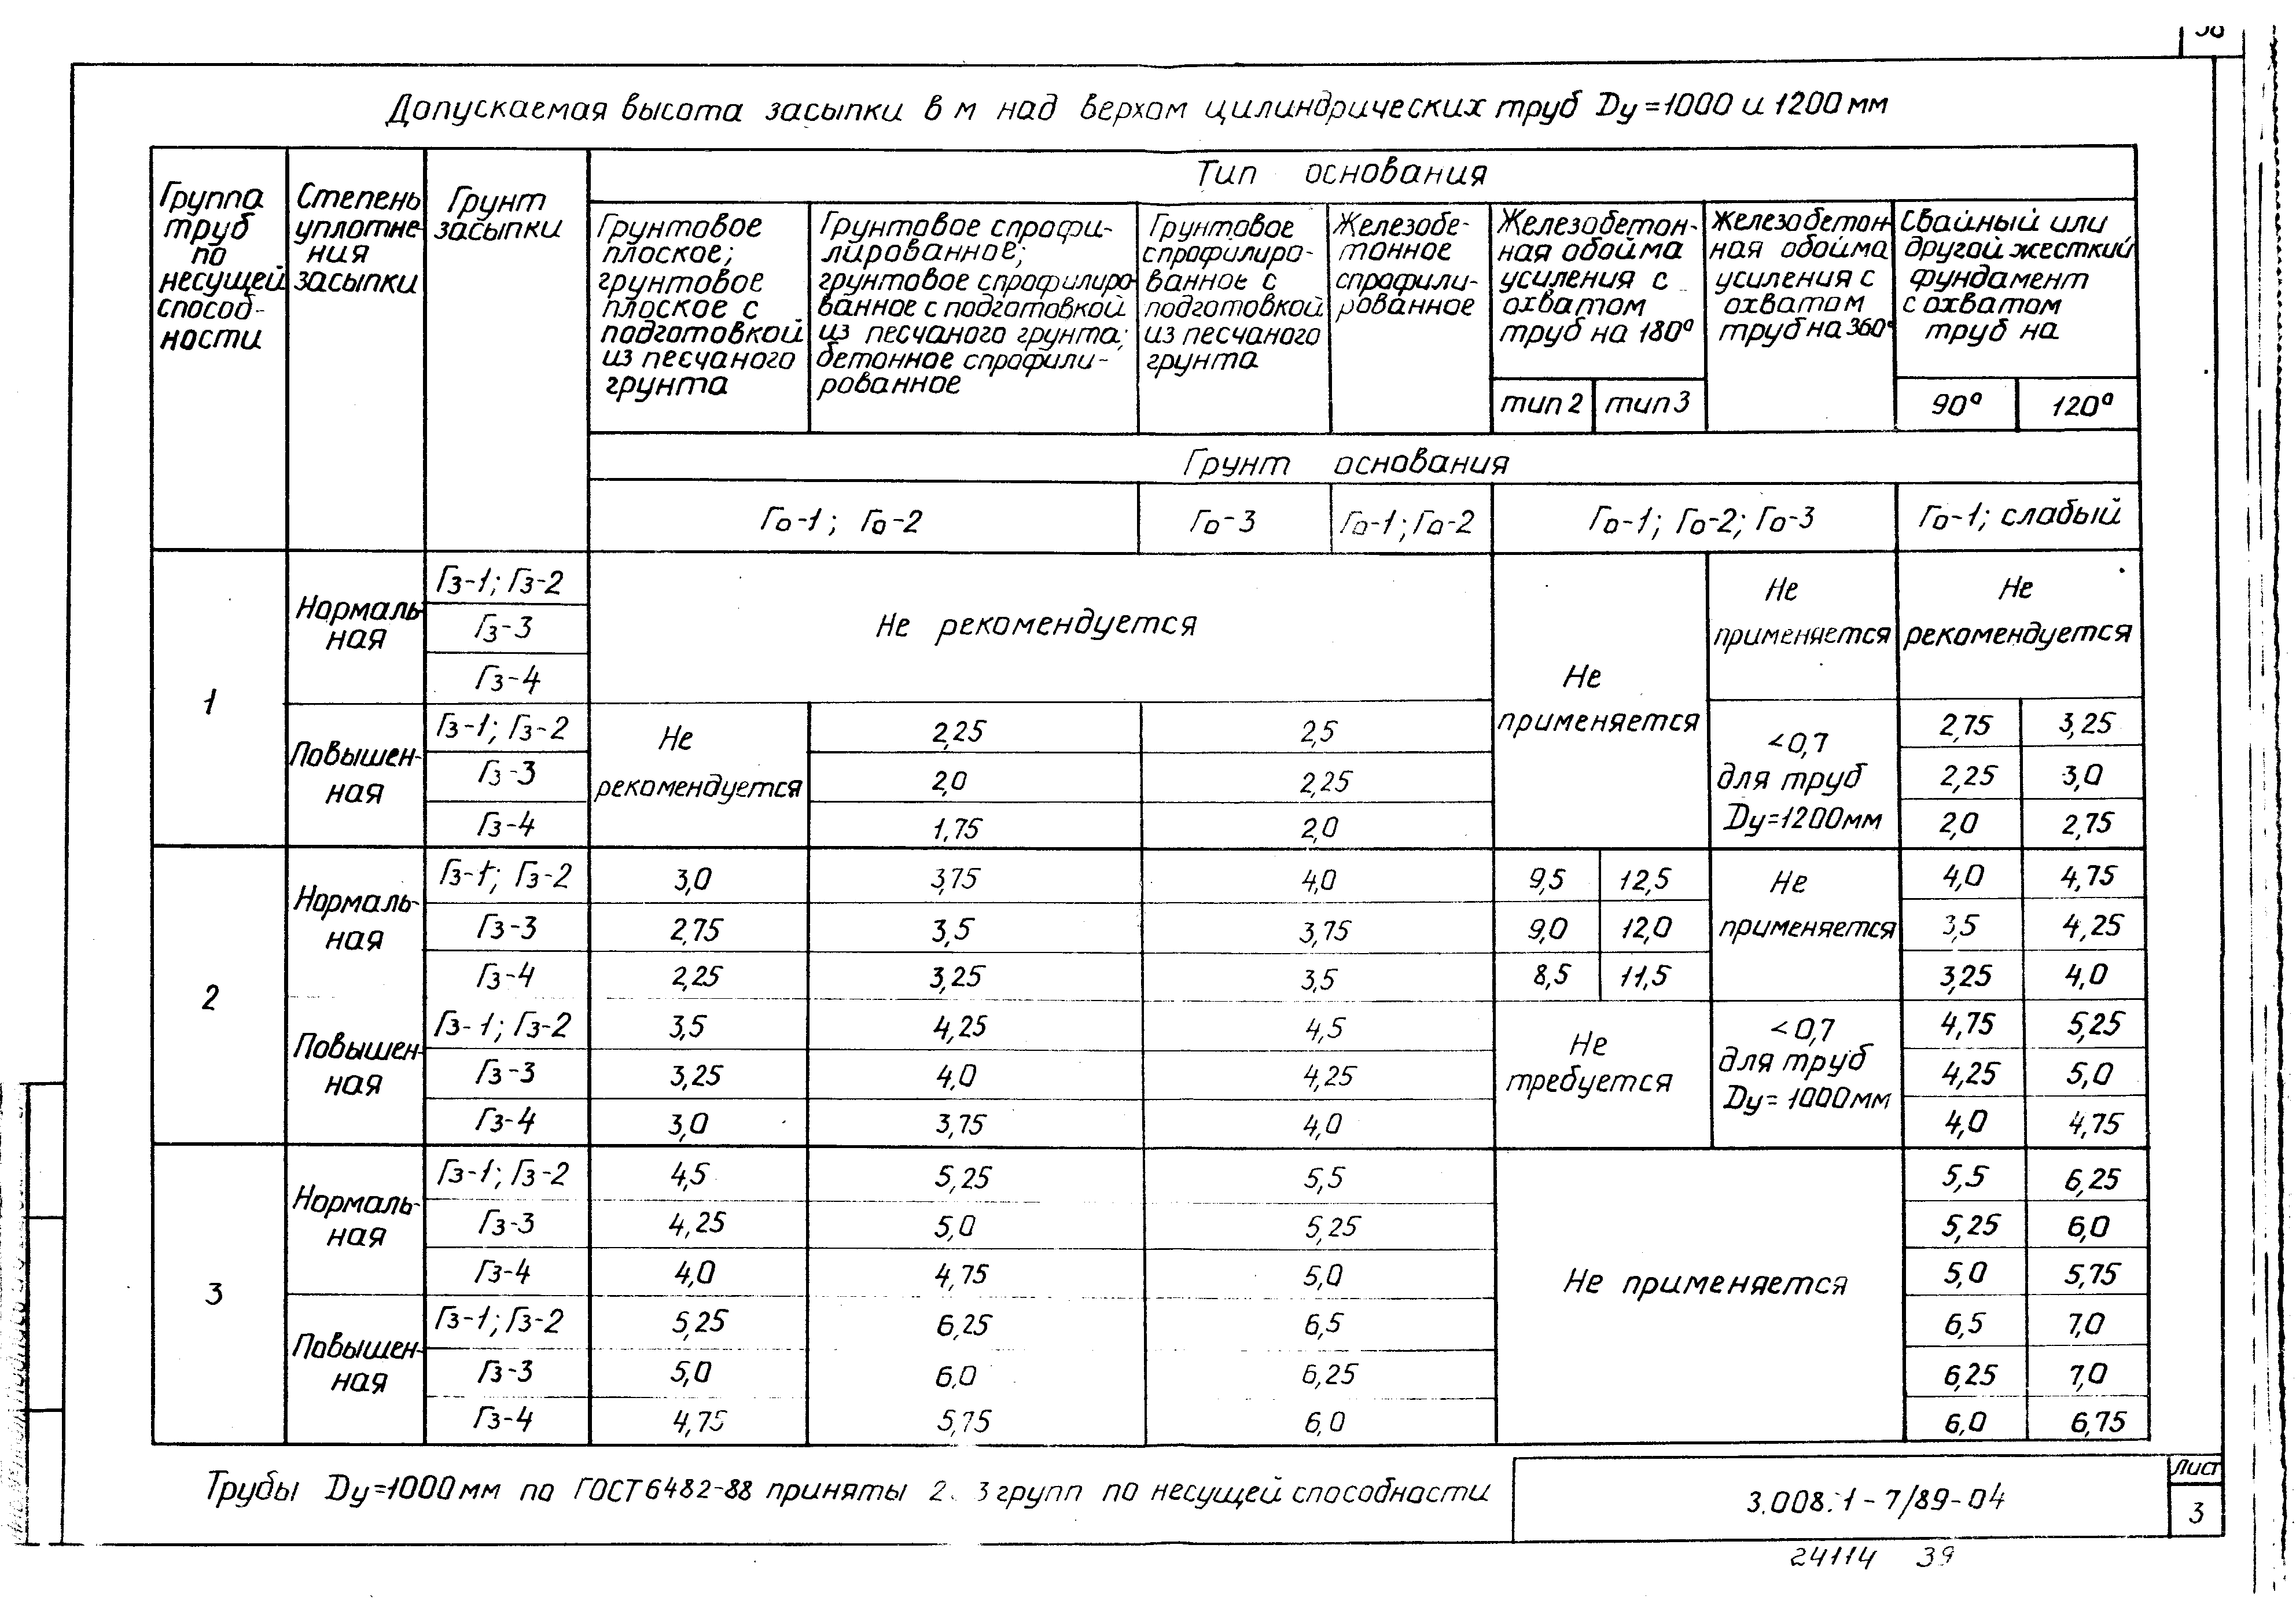 Допускаемая высота засыпки в м над верхом цилиндрических труб Dу=1000 и 1200 мм
Группа труб по несущей способ- ности
Степень уплотне- ния засыпки
Грунт засыпки
Тип основания
Грунтовое плоское; грунтовое плоское с подготовкой из песчаного грунта
Грунтовое спрофи- лированное; грунтовое спрофилиро ванное с подготовкой из песчаного грунта; бетонное спрофили- рованное
Грунтовое спрофилиро- ванное с подготовкой из песчаного грунта
Железобе- тонное спрофили- рованное
Железобетон- ная обойма усиления с охватом труб на 180°
Железобетон ная обойма усиления с охватом труб на 360°
Свайный или другой жесткий фундамент с охватом труб на
тип 2 тип 3 90° 120°
Грунт основания
Го-1; Го-2 Го-3 Го-1; Го-2 Го-1; Го-2; Го-3 Го-1; слабый
1
Нормаль ная
Гз-1; Гз-2
Гз-3
Гз-4
Не рекомендуется
Не применяется
Не применяется
Не рекомендуется
Повышен- ная
Не рекомендуется
<0,7 для труб Dу=1200мм
Гз-1; Гз-2 2,25 2,5 2,75 3,25
Гз-3 2,0 2,25 2,25 3,0
Гз-4 1,75 2,0 2,0 2,75
2
Нормаль- ная
Не применяется
Гз-1; Гз-2 3,0 3,75 4,0 9,5 12,5 4,0 4,75
Гз-3 2,75 3,5 3,75 9,0 12,0 3,5 4,25
Гз-4 2,25 3,25 3,5 8,5 11,5 3,25 4,0
Повышен- ная
Не требуется
<0,7 для труб Dу= 1000мм
Гз-1; Гз-2 3,5 4,25 4,5 4,75 5,25
Гз-3 3,25 4,0 4,25 4,25 5,0
Гз-4 3,0 3,75 4,0 4,0 4,75
3
Нормаль- ная
Не применяется
Гз-1; Гз-2 4,5 5,25 5,5 5,5 6,25
Гз-3 4,25 5,0 5,25 5,25 6,0
Гз-4 4,0 4,75 5,0 5,0 5,75
Повышен- ная
Гз-1; Гз-2 5,25 6,25 6,5 6,5 7,0
Гз-3 5,0 6,0 6,25 6,25 7,0
Гз-4 4,75 5,75 6,0 6,0 6,75
Трубы Dу=1000мм по ГОСТ 6482-88 приняты 2. 3 групп по несущей способности
3.008.1-7/89-04
Лист
3
24114 39